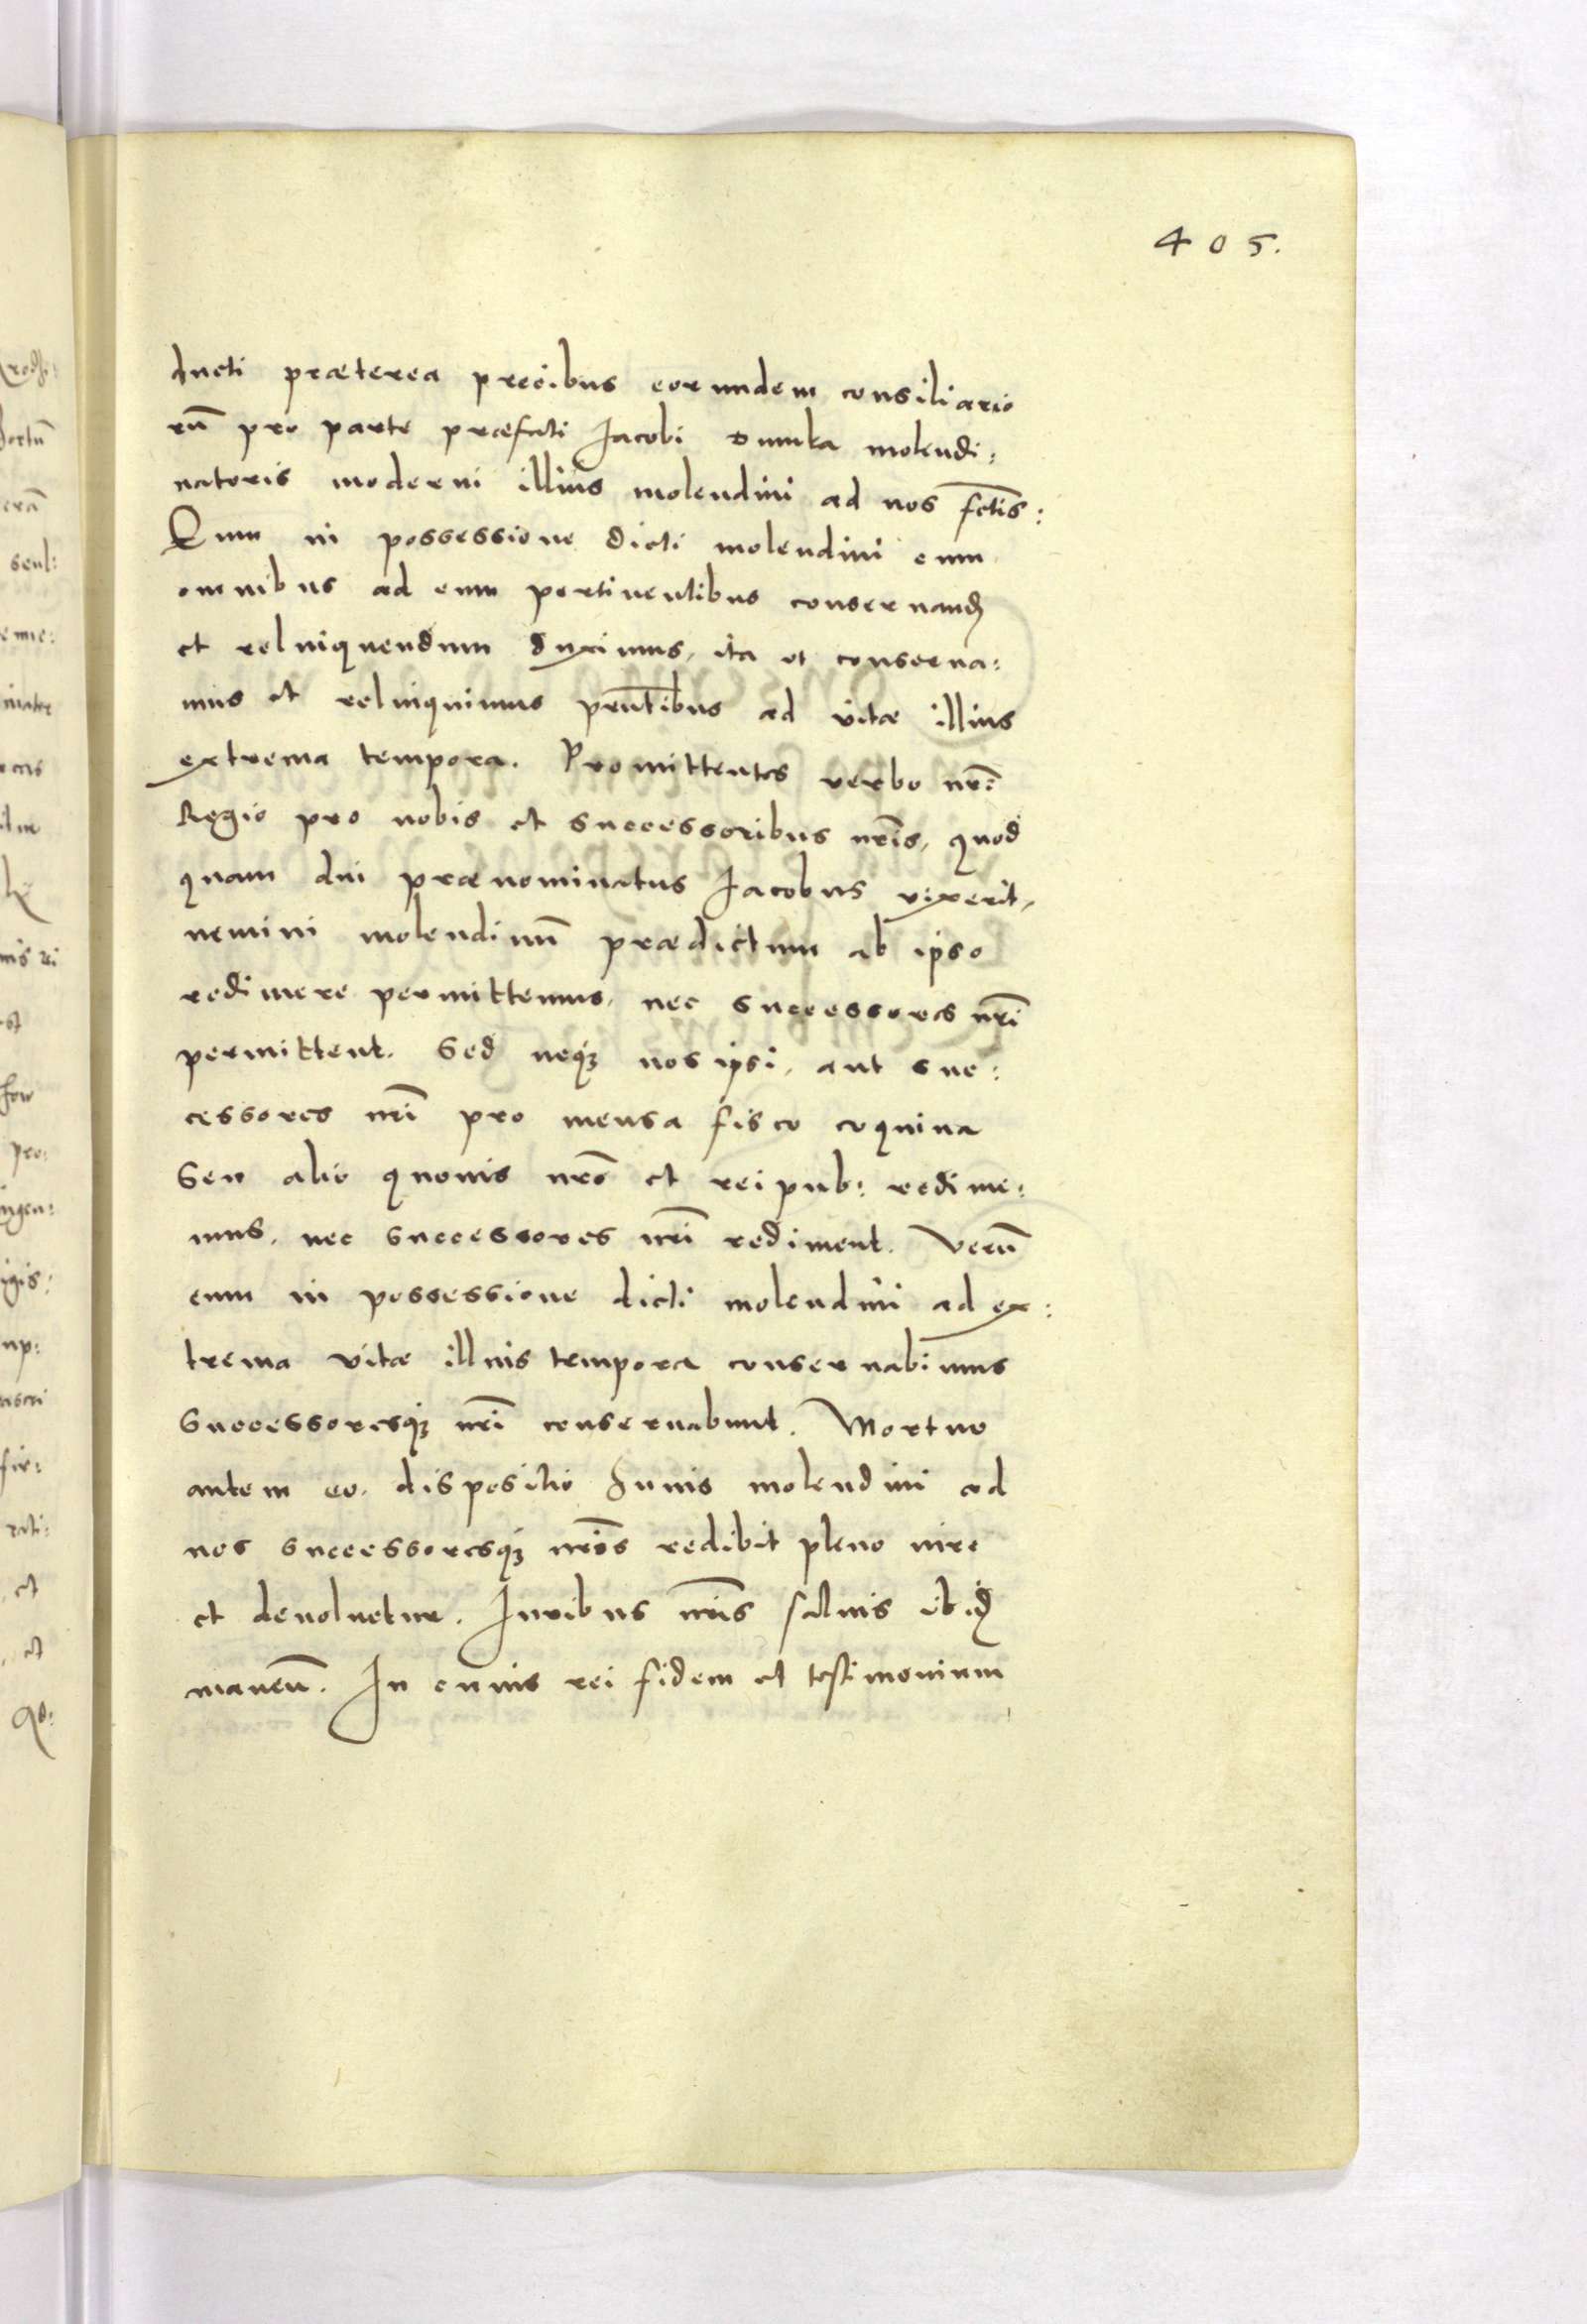 405.
ducti præterea precibus eorundem consiliario
rū pro parte præfati Jacobi Dumka molendi:
natoris moderni illius molendini ad nos fctis:
Eum in possessione dicti molendini cum
omnibus ad eum pertinentibus conseruand
et relinquendum duximus, ita ut conserua:
mus et relinquimus pñtibus ad vitæ illius
extrema tempora. Promittentes verbo nrō
Regio pro nobis et successoribus nrīs, quod
quam diu prænominatus Jacobus vixerit,
nemini molendinū prædictum ab ipso
redimere permittemus, nec successores nrī
permittent. Sed neqꝫ nos ipsi, aut suc:
cessores nrī pro mensa fisco coquina
Seu alio quouis nrō et reipub: redime:
mus, nec successores nrī rediment. Verū
eum in possessione dicti molendini ad ex:
trema vitæ illius tempora conseruabimus
Successoresqꝫ nrī conseruabunt. Mortuo
autem eo, dispositio huius molendini ad
nos successoresqꝫ nrōs redibit pleno iure
et deuoluetur. Juribus nrīs saluis ibid
maneñ. In cuius rei fidem et testimonium